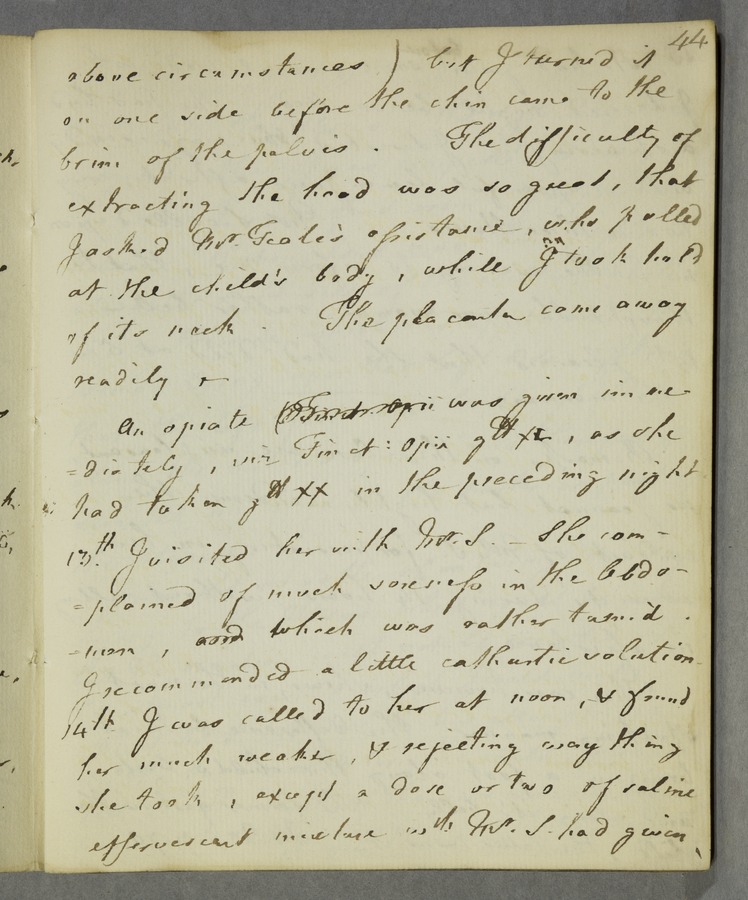 44
above circumstances) but I turned it
on one side before the chin came to the
brim of the pelvis. The difficulty of
extracting the head was so great, that
I asked Mr. Teale's assistance, who pulled
at the child's body, while I took hold
of its neck. The placenta came away
readily
An opiate was given imme-
=diately, viz Tinct: opii gtt, as she
had taken gtt xx in the preceding night
13th. I visited her with Mr. S. - She com-
=plained of much soreness in the abdo-
=men, and which was rather tumid.
I recommended a little cathartic solution
14th I was called to her at noon, & found
her much weaker, & rejecting every thing
she took, except a dose or two of saline
effervescent mixture wch Mr. S. had given,